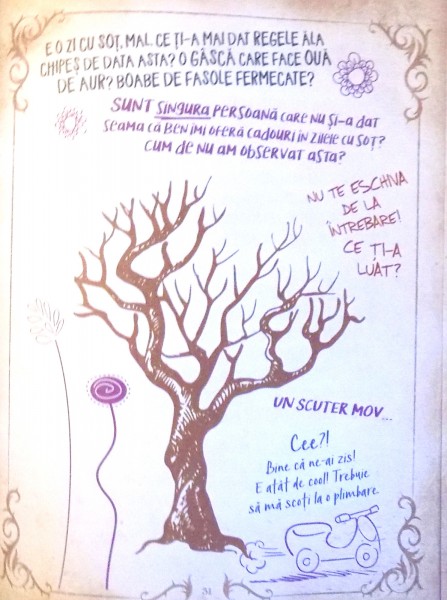 E O ZI CU SOȚ, MAL. CE ȚI-A MAI DAT REGELE ĂLA
CHIPEȘ DE DATA ASTA? O GÂSCĂ CARE FACE OUĂ
DE AUR? BOABE DE FASOLE FERMECATE?
SUNT SINGURA PERSOANĂ CARE NU ȘI-A DAT
SEAMA CĂ BEN ÎMI OFERĂ CADOURI ÎN ZILELE CU SOȚ?
CUM DE NU AM OBSERVAT ASTA?
NU TE ESCHIVA
DE LA
ÎNTREBARE!
CE ȚI-A
LUAT?
UN SCUTER MOV...
Cee?!
Bine că ne-ai zis!
E atât de cool! Trebuie
să mă scoți la o plimbare
31